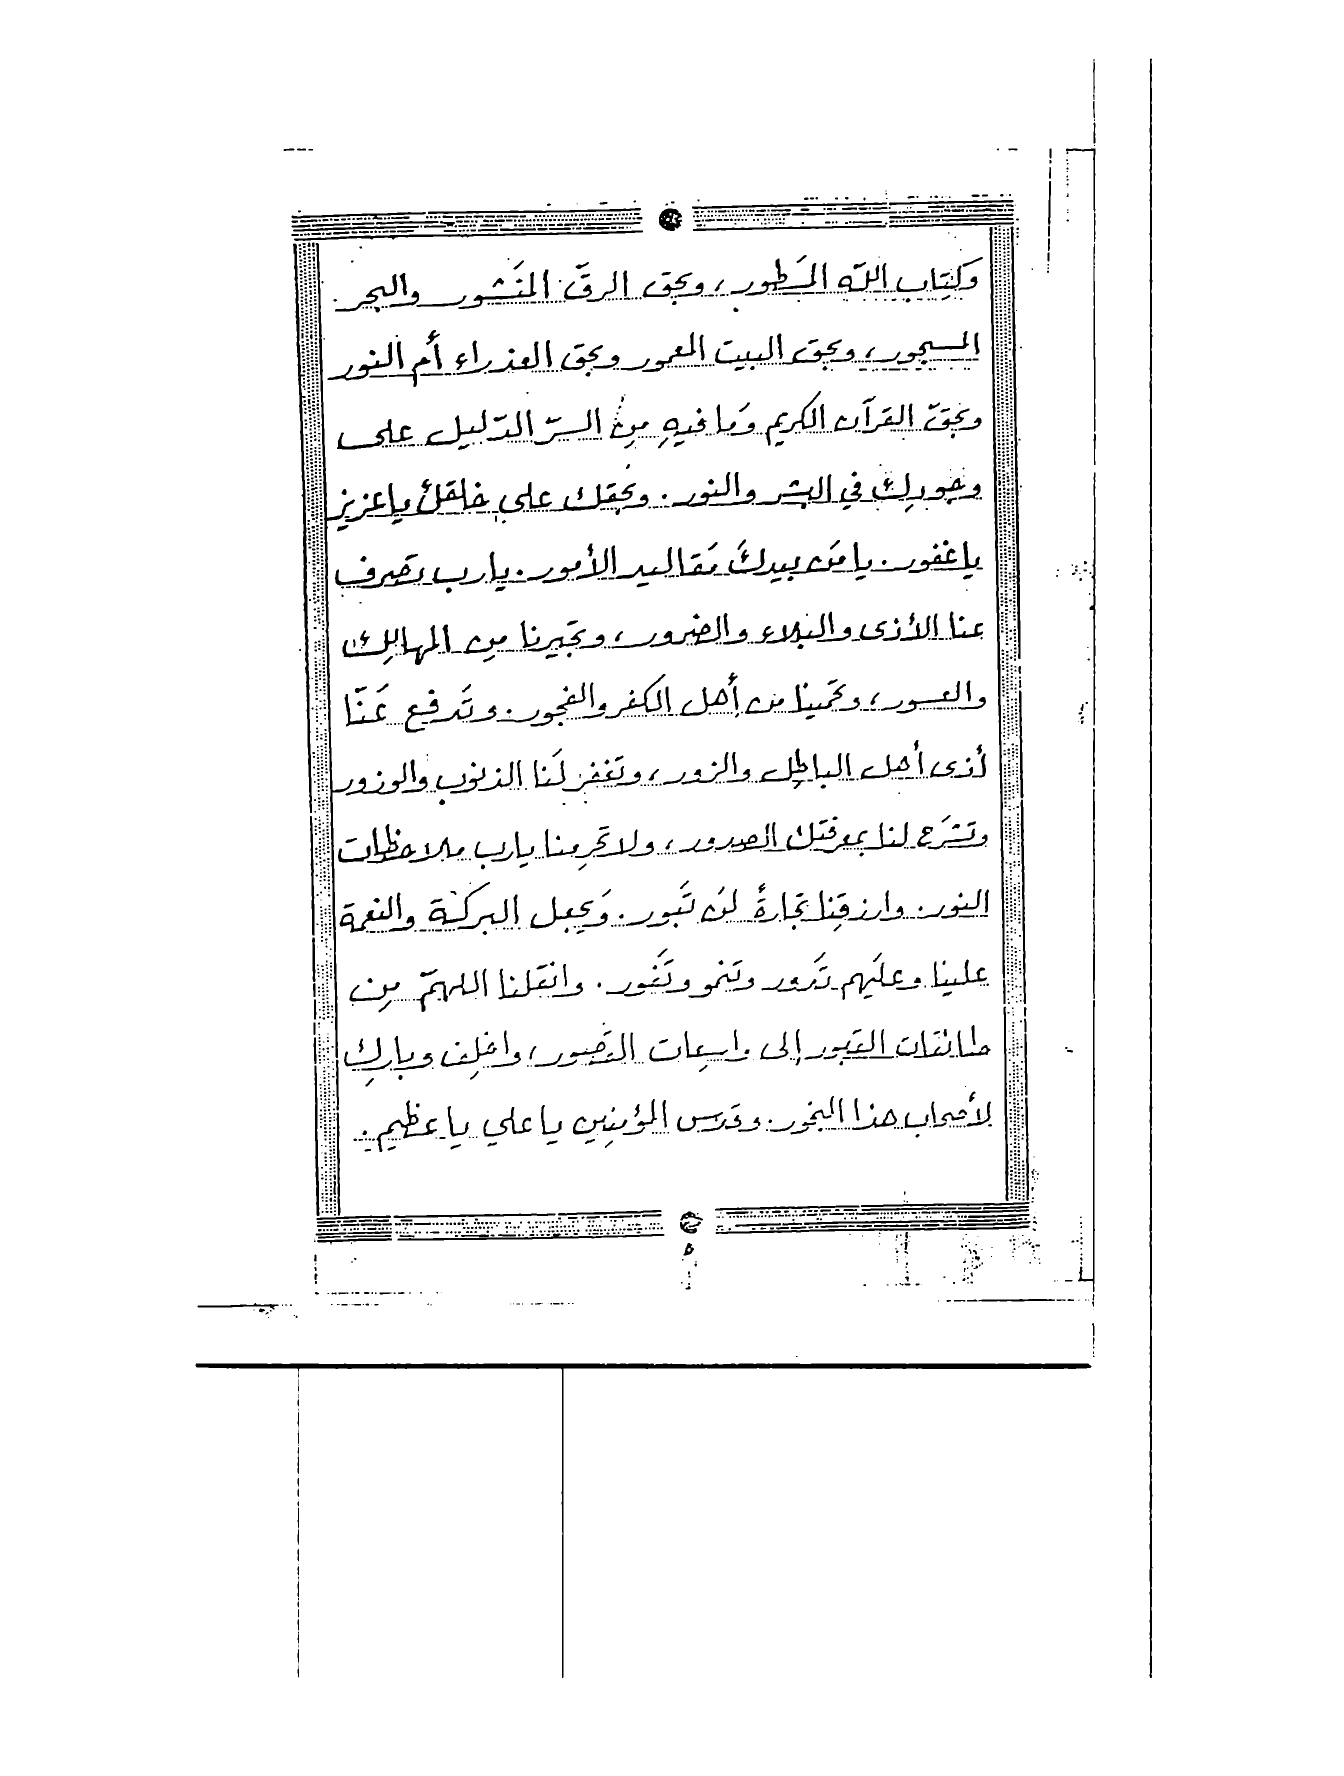 وكِتاب اللّه المَسطور، وبحق الرقّ المنَشور والبحر
المسجور، وبحق البيت المعمور وبحق العذراء أُم النور
وبحَقّ القرآن الكريم وَما فيهِ مِن السرّ الدّليل على
وجودِك في البشر والنور. وبحقك على خلقك يا عزيز
يا غفور. يا مَن بيدكَ مَقاليد الأمور. يا رب تصَرف
عنا الأذى والبلاء والضرور، وتجَيرنا مِن المهالِك
والعسور، وتحَمينا من أهل الكفر والفجور. وتَدفع عَنّا
أذى أهل الباطِل والزور، وتَغفر لَنا الذنوب والوزور
وتشَرح لنا بمعرفتك الصدور، ولا تحَرِمنا يا رب ملاحظات
النور. وارزقِنا تجَارةً لن تَبور. وَتجعل البركة والنعمة
علينا وعليَهم تَدور وتَنمو وتَفور. وانقلنا اللهمّ مِن
ضائقات القبور إلى واسِعات القصور، واخلِف وبارِك
لأصحاب هذا البخور. وقدس المؤمنِين يا علي يا عظيم.
٥